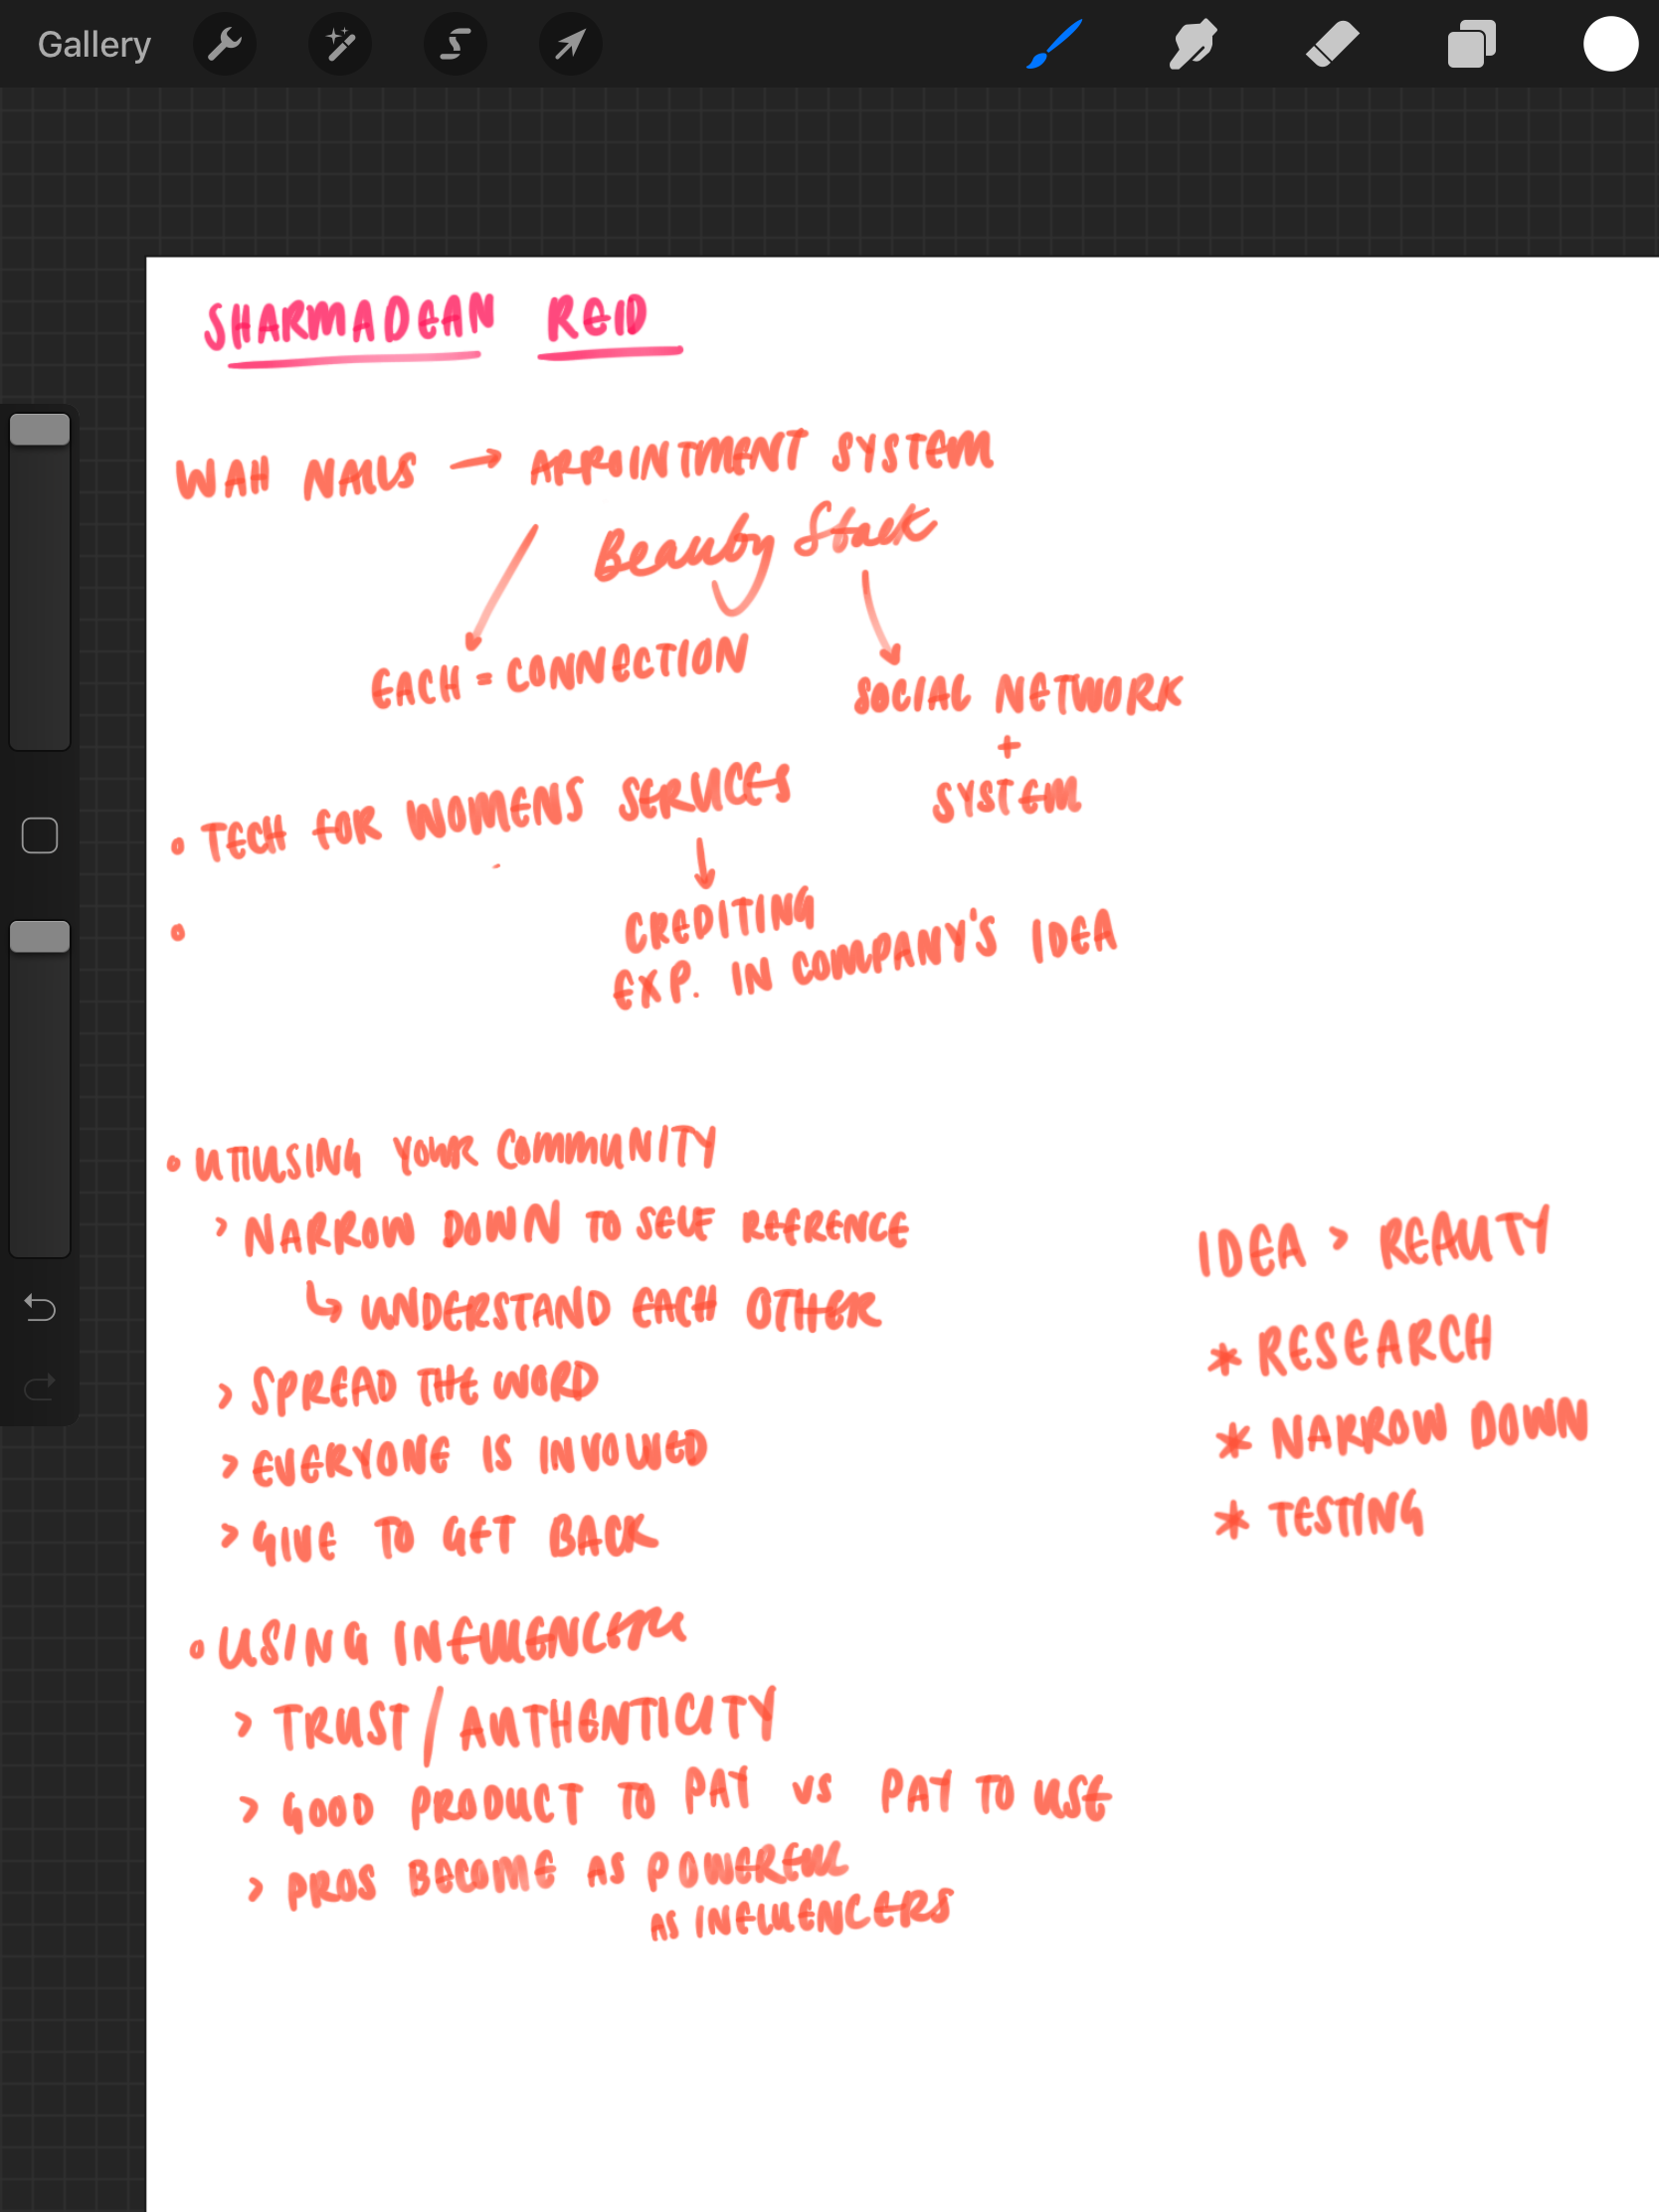 Gallery
SHARMADEAN REID
WAH NAILS → APPOINTMENT SYSTEM
Beauty Stack
EACH = CONNECTION
SOCIAL NETWORK
+
SYSTEM
• TECH FOR WOMENS SERVICES
↓
CREDITING
EXP. IN COMPANY'S IDEA
•
• UTILISING YOUR COMMUNITY
> NARROW DOWN TO SELF REFRENCE
↳ UNDERSTAND EACH OTHER
> SPREAD THE WORD
> EVERYONE IS INVOLVED
> GIVE TO GET BACK
IDEA > REALITY
* RESEARCH
* NARROW DOWN
* TESTING
• USING INFLUENCERS
> TRUST / AUTHENTICITY
> GOOD PRODUCT TO PAY VS PAY TO USE
> PROS BECOME AS POWERFUL
AS INFLUENCERS